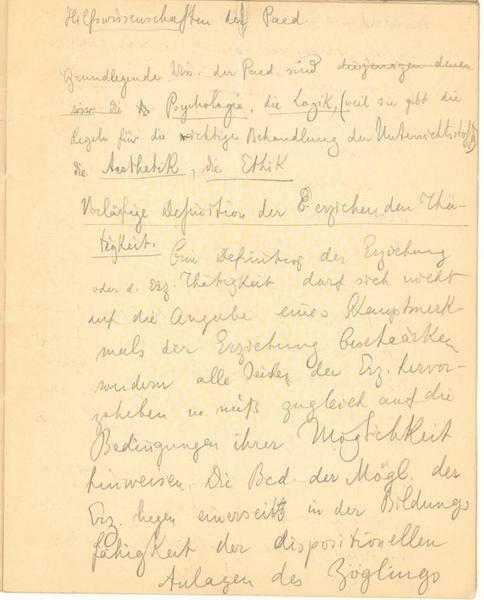 Hilfswissenschaften der Paed
Grundlegende Wiss. der Paed. sind diejenigen denen
die Psychologie, die Logik, (weil sie gibt die
Regeln für die richtige Behandlung der Unterrichtsstoffe)
die Aesthetik, die Ethik
Vorläufige Definition der erziehenden Thä-
tigkeit.
Eine Definition der Erziehung
oder d. Erz. Thätigkeit darf sich nicht
auf die Angabe eines Hauptmerk-
mals der Erziehung beschränken
sondern alle Seiten der Erz. hervor-
zuheben u. muß zugleich auf die
Bedingungen ihrer Möglichkeit
hinweisen. Die Bed. der Mögl. der
Erz. liegen einerseits in der Bildungs
fähigkeit der dispositionellen
Anlagen des Zöglings